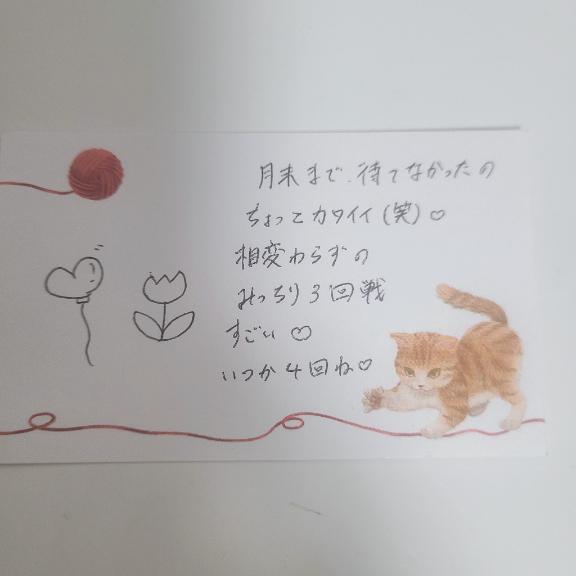 月末まで、待てなかったの
ちょっとカワイイ(笑)♡
相変わらずの
みっちり3回戦
すごい♡
いつか4回ね♡